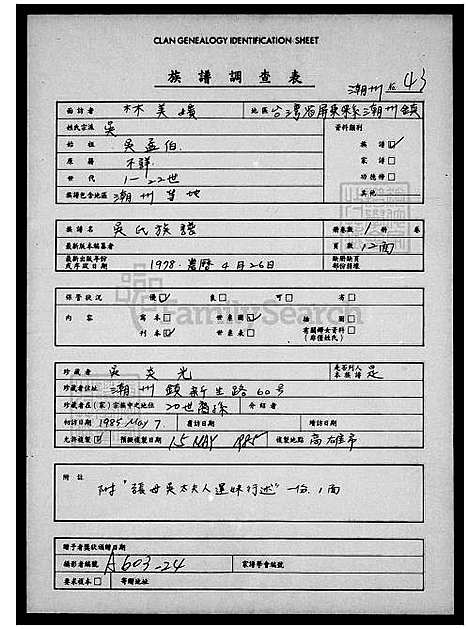 CLAN GENEALOGY IDENTIFICATION SHEET
族譜調查表
潮州 No 43
面訪者 林美嬪 地區 台灣省屏東縣潮州鎮
姓氏宗派 吳 資料類別
始祖 吳孟伯 族譜☑
原籍 不詳 家譜□
世代 1-22世 功德榜□
族譜包含地區 潮州等地 其他
族譜名 吳氏族譜 冊卷數 1 冊 卷
最新版本編纂者 頁數 12面
最新出版年份或序跋日期 1978.農曆4月26日 缺冊缺頁部份損壞
保管狀況 優☑ 良□ 可□ 劣□
內容 寫本□ 世系圖☑ 插圖□
刊本☑ 世系表□ 有關婦女資料□(序僅姓氏)
珍藏者 吳炎光 是否列入本族譜 是
珍藏者住址 潮州鎮新生路60号
珍藏者在(家)宗族中之地位 20世裔孫 介紹者
初訪日期 1985 May 7 覆訪日期 增訪日期
允許複製☑ 預擬複製日期 15 MAY 1985 複製地點 高雄市
附註
附"張母吳太夫人運妹行述"一份,1面
贈予者獎狀頒贈日期
攝影者編號 A603-24 家譜學會編號
要求複本□ 寄贈地址
FamilySearch